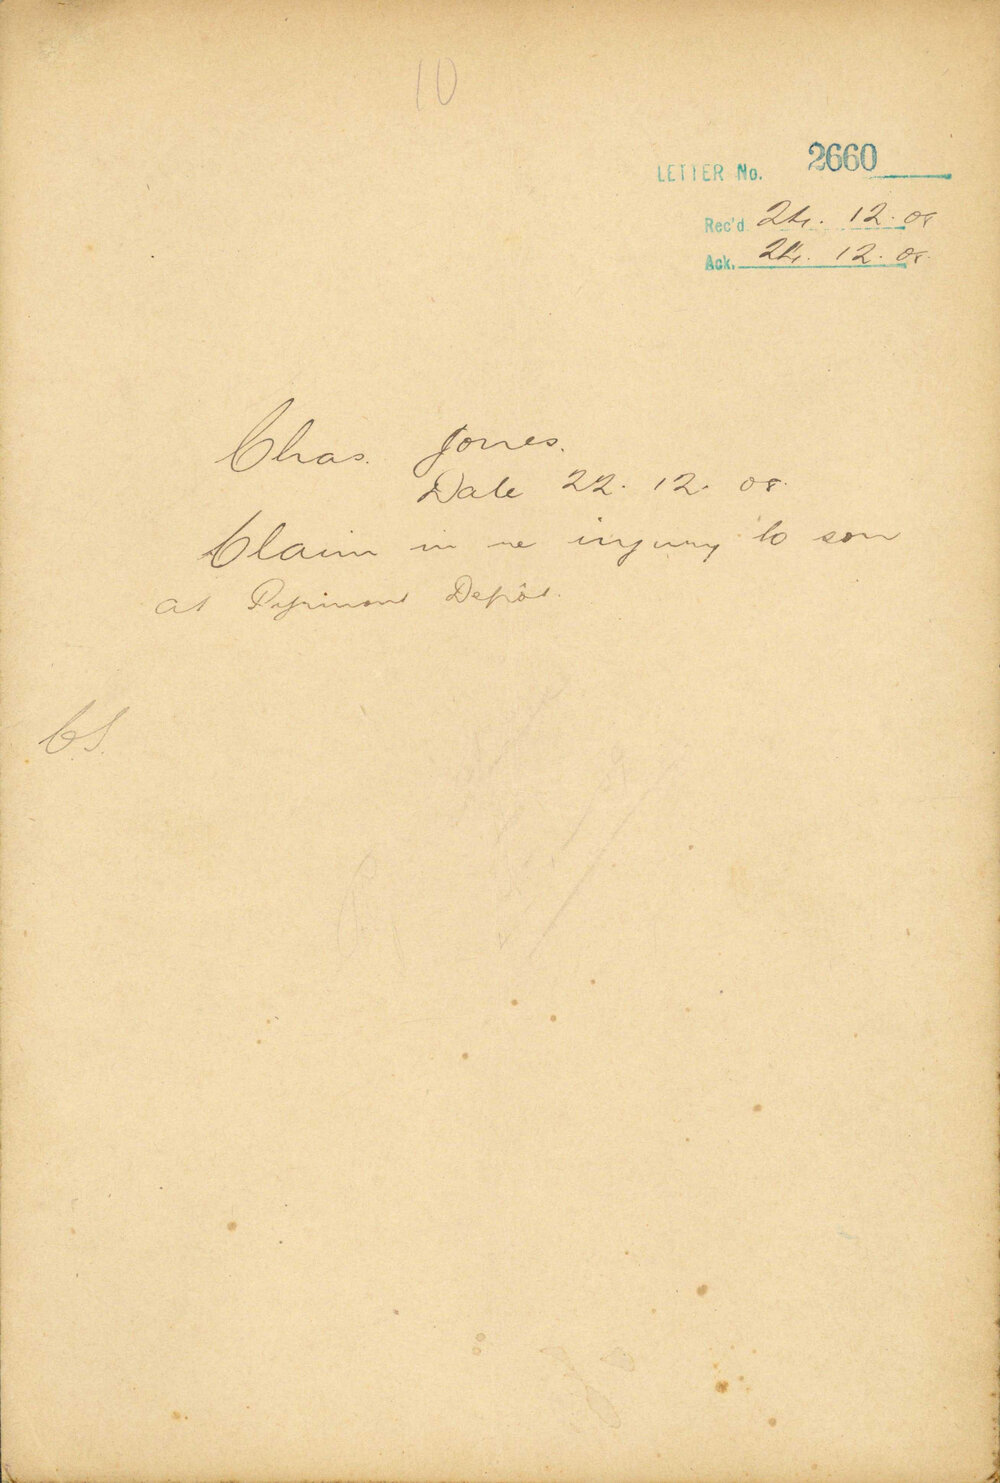 10
LETTER No. 2660
Rec'd 24. 12. 08
Ack. 24. 12. 08.
Chas. Jones.
Date 22. 12. 08.
Claim in re injury to son
at Pyrmont Depôt.
CS.